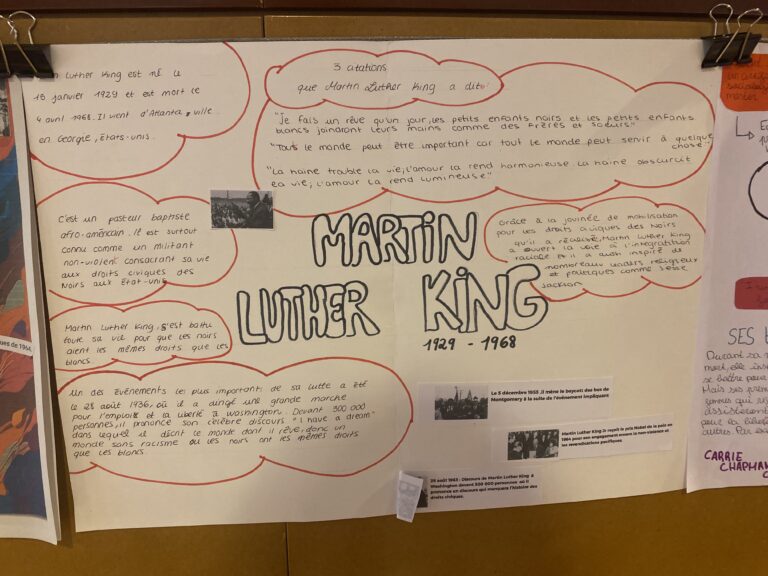 Luther King est né le
15 janvier 1929 et est mort le
4 avril 1968. Il vient d'Atlanta, ville
en Georgie, États-unis.
3 citations
que Martin Luther King a dit:
"Je fais un rêve qu'un jour, les petits enfants noirs et les petits enfants
blancs joindront leurs mains comme des frères et soeurs"
"Tous le monde peut être important car tout le monde peut servir à quelque
chose"
"La haine trouble la vie; l'amour la rend harmonieuse. La haine obscurcit
la vie; l'amour la rend lumineuse."
C'est un pasteur baptiste
afro-américain. Il est surtout
connu comme un militant
non-violent consacrant sa vie
aux droits civiques des
Noirs aux États-unis
MARTIN
LUTHER KING
1929 - 1968
Grâce à la journée de mobilisation
pour les droits civiques des Noirs
qu'il a réalisé, Martin Luther King
a ouvert la voie à l'intégration
raciale et il a aussi inspiré de
nombreux leaders religieux
et politiques comme Jesse
Jackson
Martin Luther King, s'est battu
toute sa vie pour que les noirs
aient les mêmes droits que les
blancs.
Un des évènements les plus important de sa lutte a été
le 28 août 1936, où il a dirigé une grande marche
pour l'emploi et la liberté à Washington. Devant 300 000
personnes, il prononce son célèbre discours "I have a dream"
dans lequel il décrit le monde dont il rêve, donc un
monde sans racisme où les noirs ont les mêmes droits
que les blancs.
Le 5 décembre 1955, il mène le boycott des bus de
Montgomery à la suite de l'évènement impliquant
Martin Luther King Jr reçoit le prix Nobel de la paix en
1964 pour son engagement envers la non-violence et
les revendications pacifiques
28 août 1963 : Discours de Martin Luther King à
Washington devant 300 000 personnes où il
prononce un discours qui marquera l'histoire des
droits civiques.
SES
Durant sa
mort, elle
se battre pour
Mais ses
CARRIE
CHAPMAN